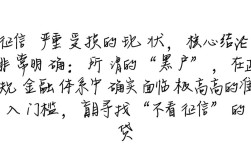 征信严重受损的现状，核心结论
非常明确：所谓的“黑户”，在正
规金融体系中确实面临极高的准
入门槛，盲寻找“不看征信”的
贷